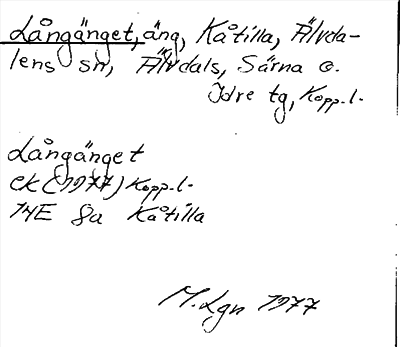 Långänget, äng, Kåtilla, Älvda-
lens sn, Älvdals, Särna o.
Idre tg, Kopp. l.
Långänget
ek (1977) Kopp. l.
14E 8a Kåtilla
M. Lgn 1977